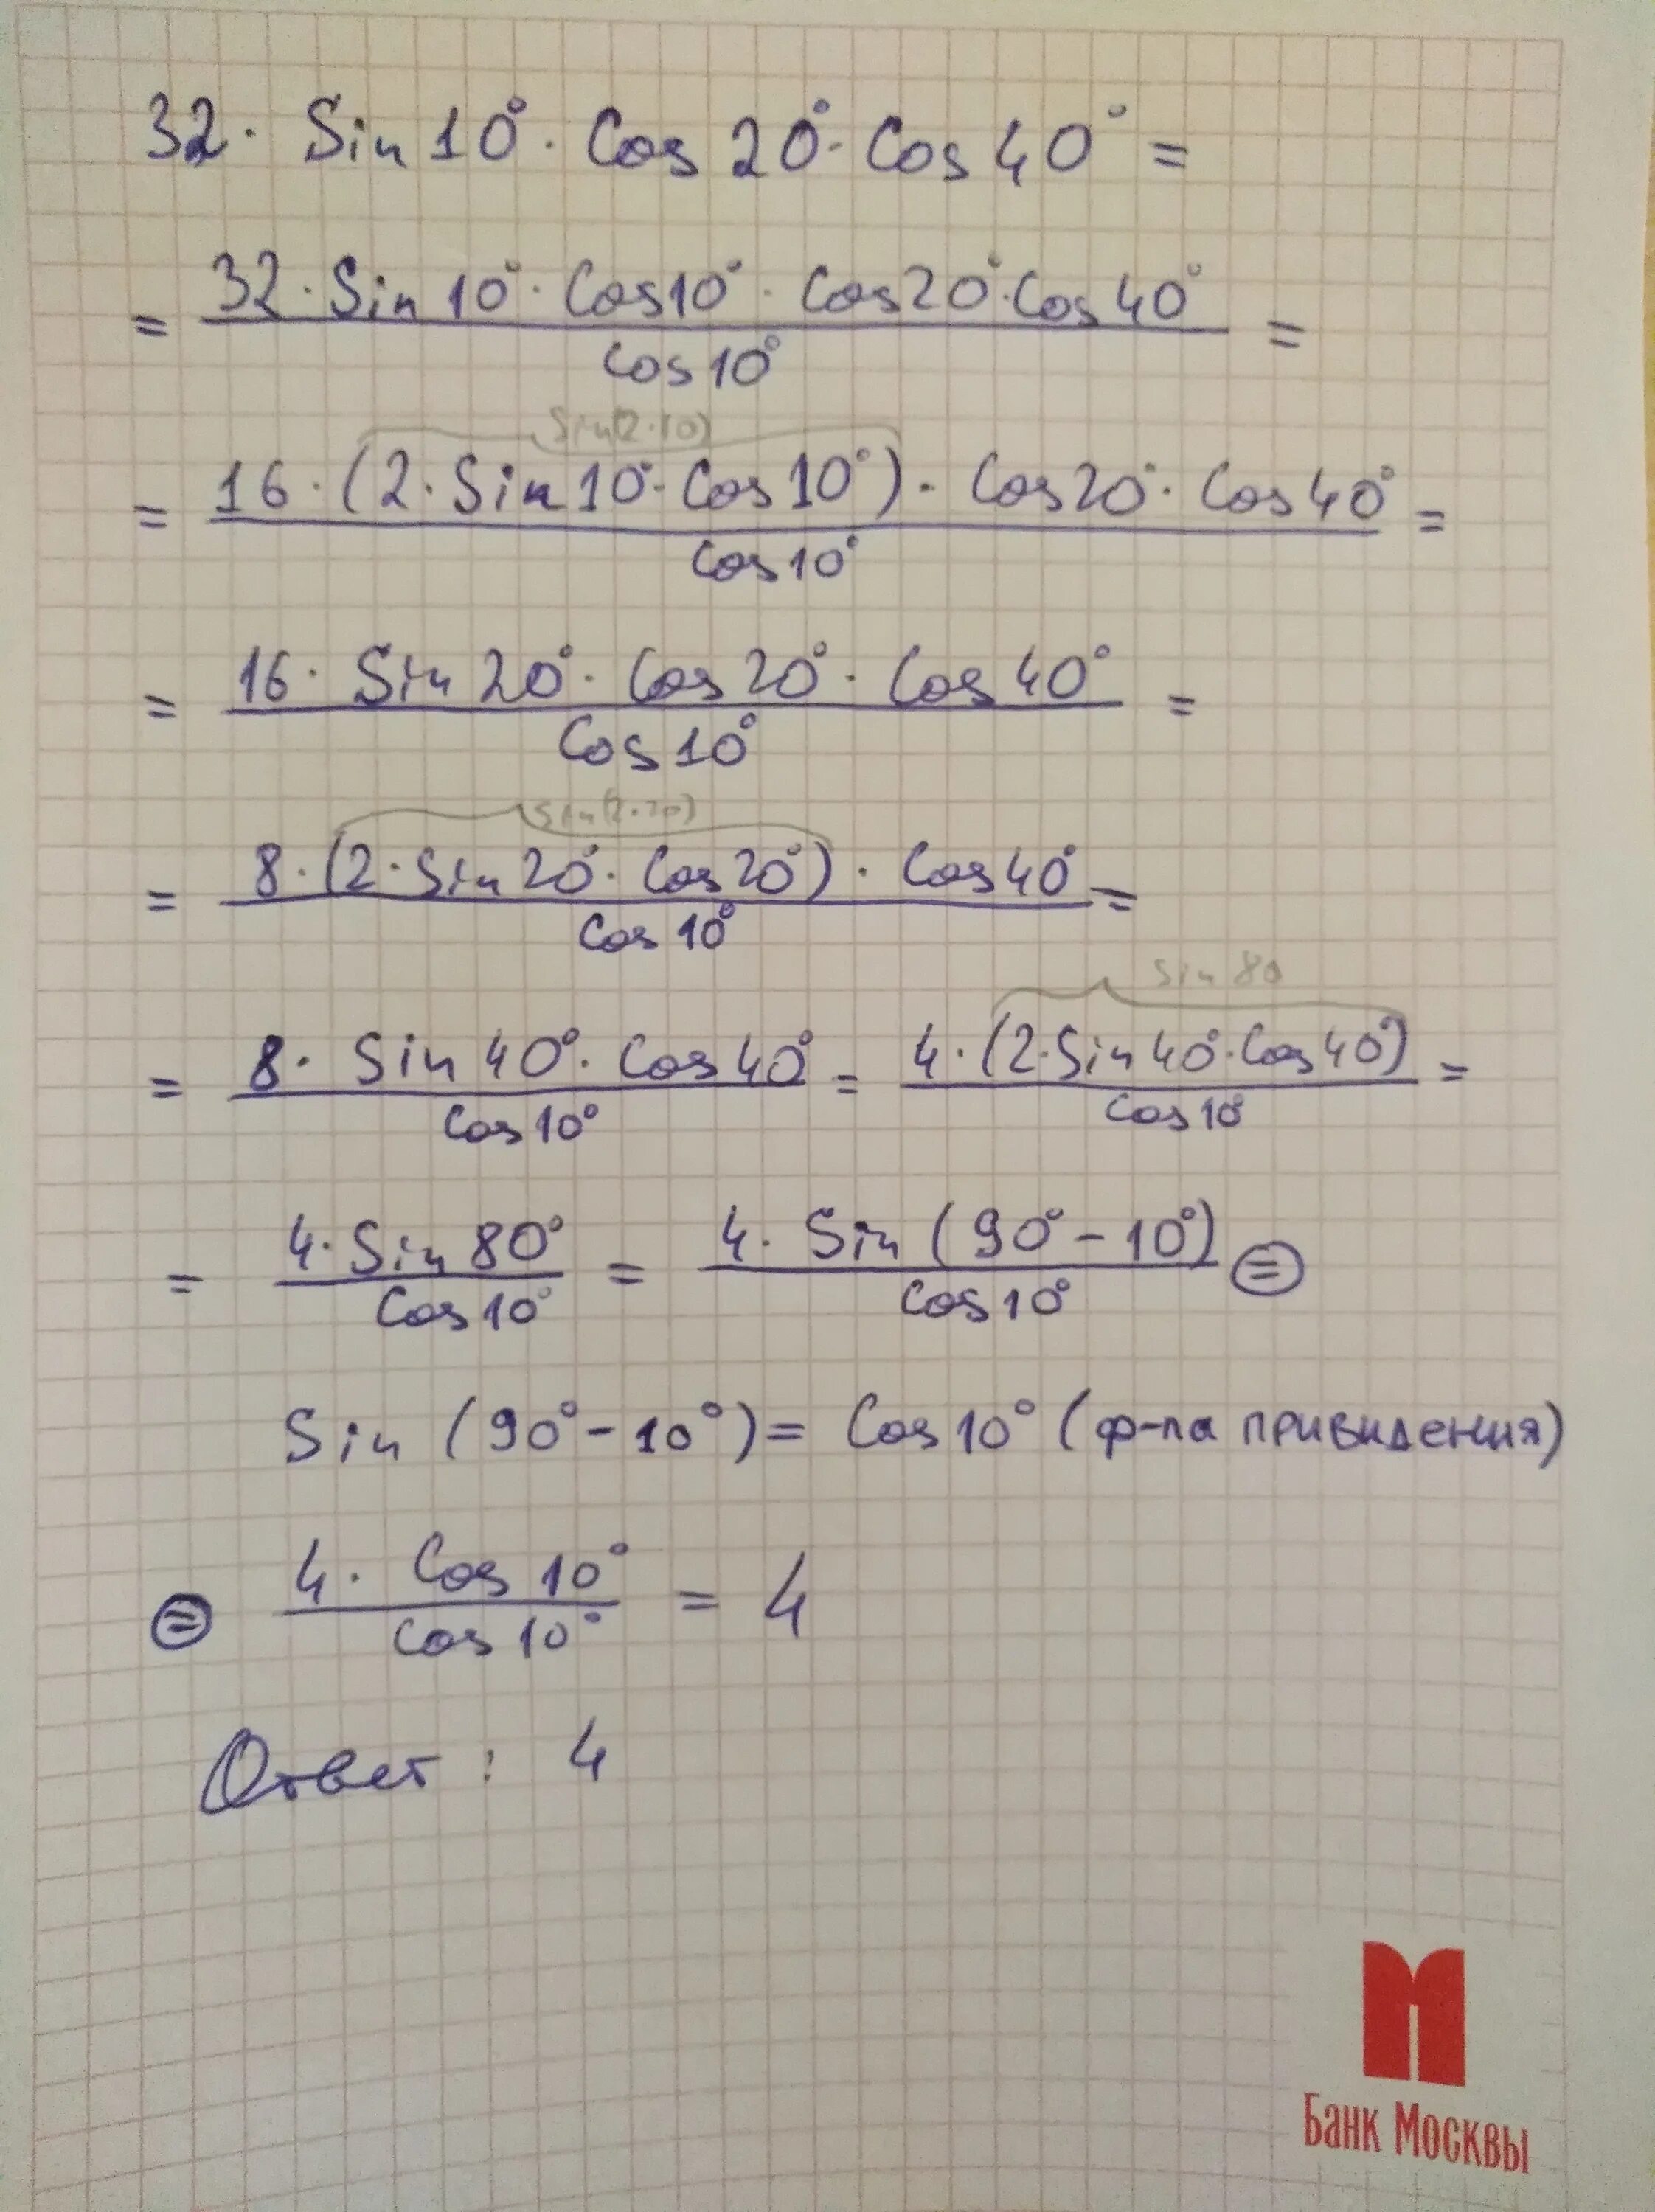 32 · Sin 10° · Cos 20° · Cos 40° =
= 32 · Sin 10° · Cos 10° · Cos 20° · Cos 40° / Cos 10° =
Sin(2·10)
= 16 · (2 · Sin 10° · Cos 10°) · Cos 20° · Cos 40° / Cos 10° =
= 16 · Sin 20° · Cos 20° · Cos 40° / Cos 10° =
Sin(2·20)
= 8 · (2 · Sin 20° · Cos 20°) · Cos 40° / Cos 10° =
Sin 80
= 8 · Sin 40° · Cos 40° / Cos 10° = 4 · (2 · Sin 40° · Cos 40°) / Cos 10° =
= 4 · Sin 80° / Cos 10° = 4 · Sin (90° - 10°) / Cos 10° ⊜
Sin (90° - 10°) = Cos 10° (ф-ла привидения)
⊜ 4 · Cos 10° / Cos 10° = 4
Ответ : 4
Банк Москвы